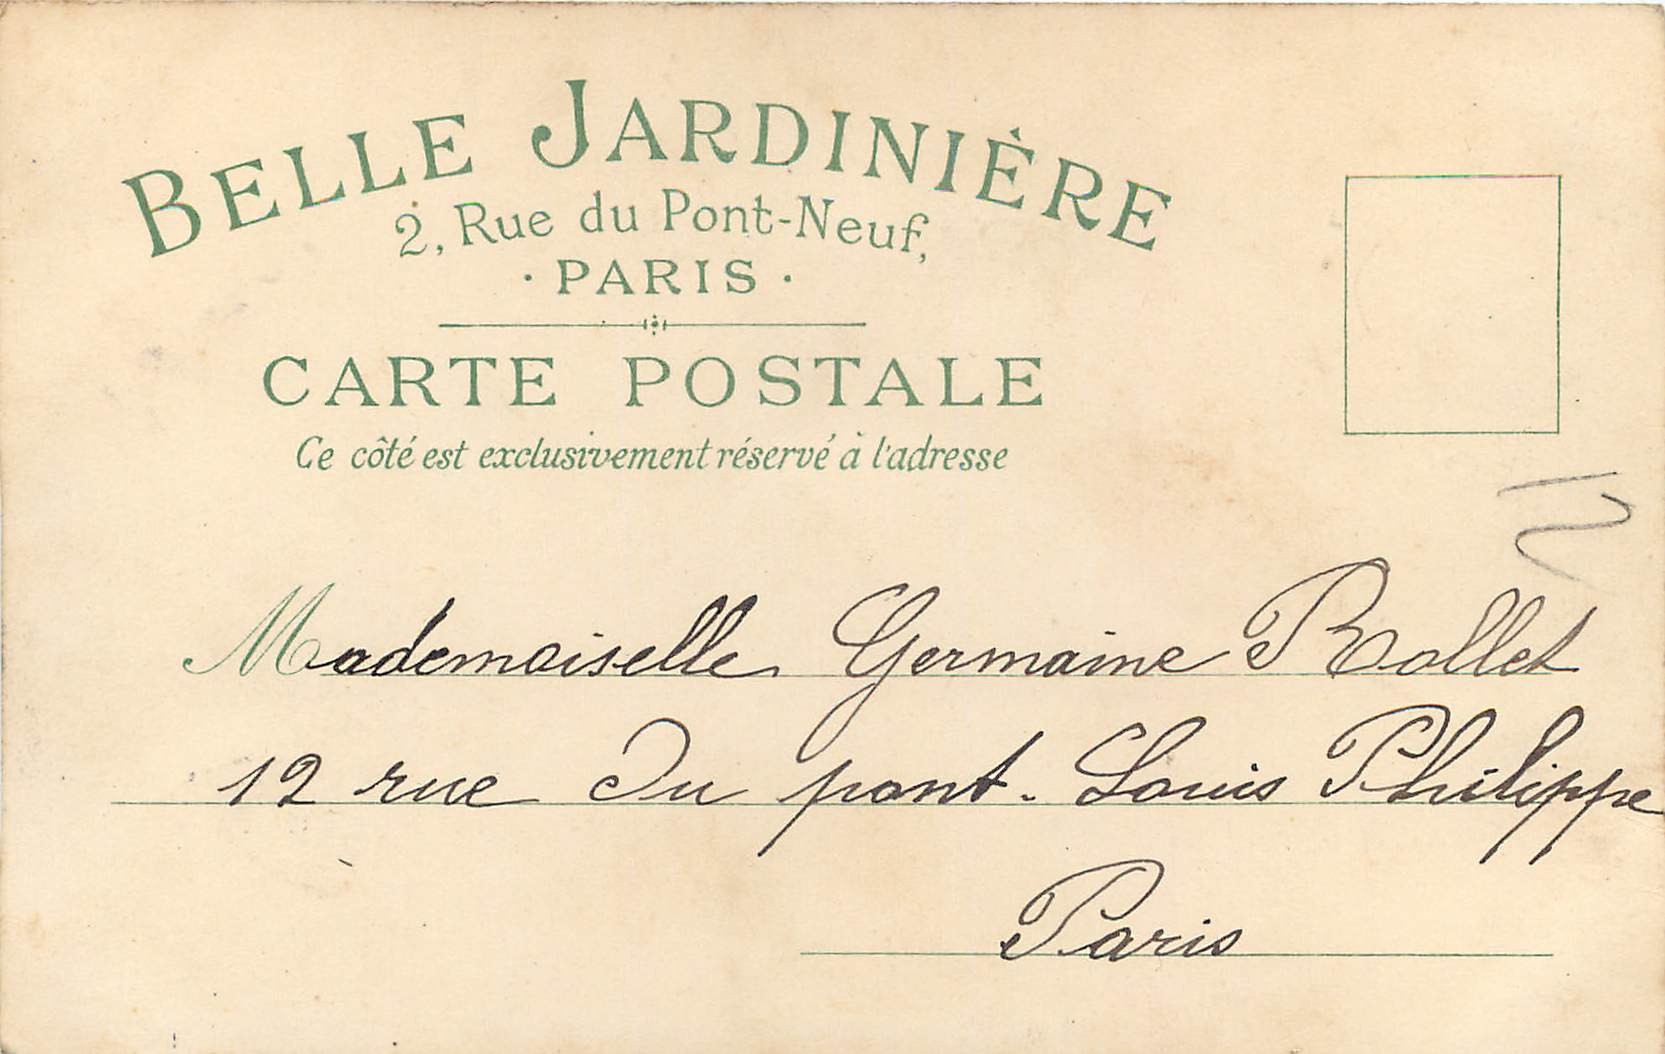 BELLE JARDINIÈRE
2, Rue du Pont-Neuf,
· PARIS ·
CARTE POSTALE
Ce côté est exclusivement réservé à l'adresse
12
Mademoiselle Germaine Rollet
12 rue Du pont. Louis Philippe
Paris